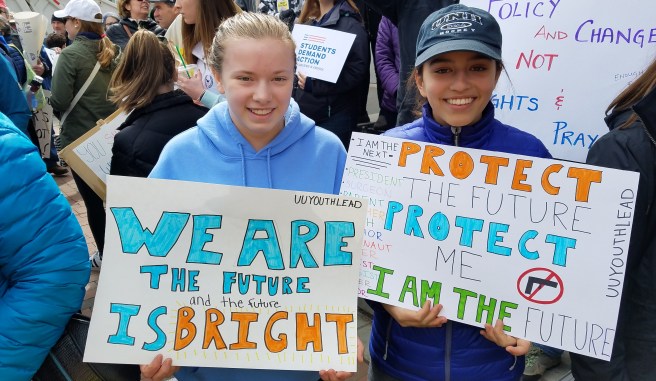 POLICY
AND CHANGE
NOT
& PRAY
STUDENTS
DEMAND
ACTION
UUYOUTHLEAD
WE ARE
THE FUTURE
and the future
IS BRIGHT
- I AM THE
NEXT-
PRESIDENT
SURGEON
PROTECT
THE FUTURE
PROTECT
ME
I AM THE FUTURE
UUYOUTHLEAD